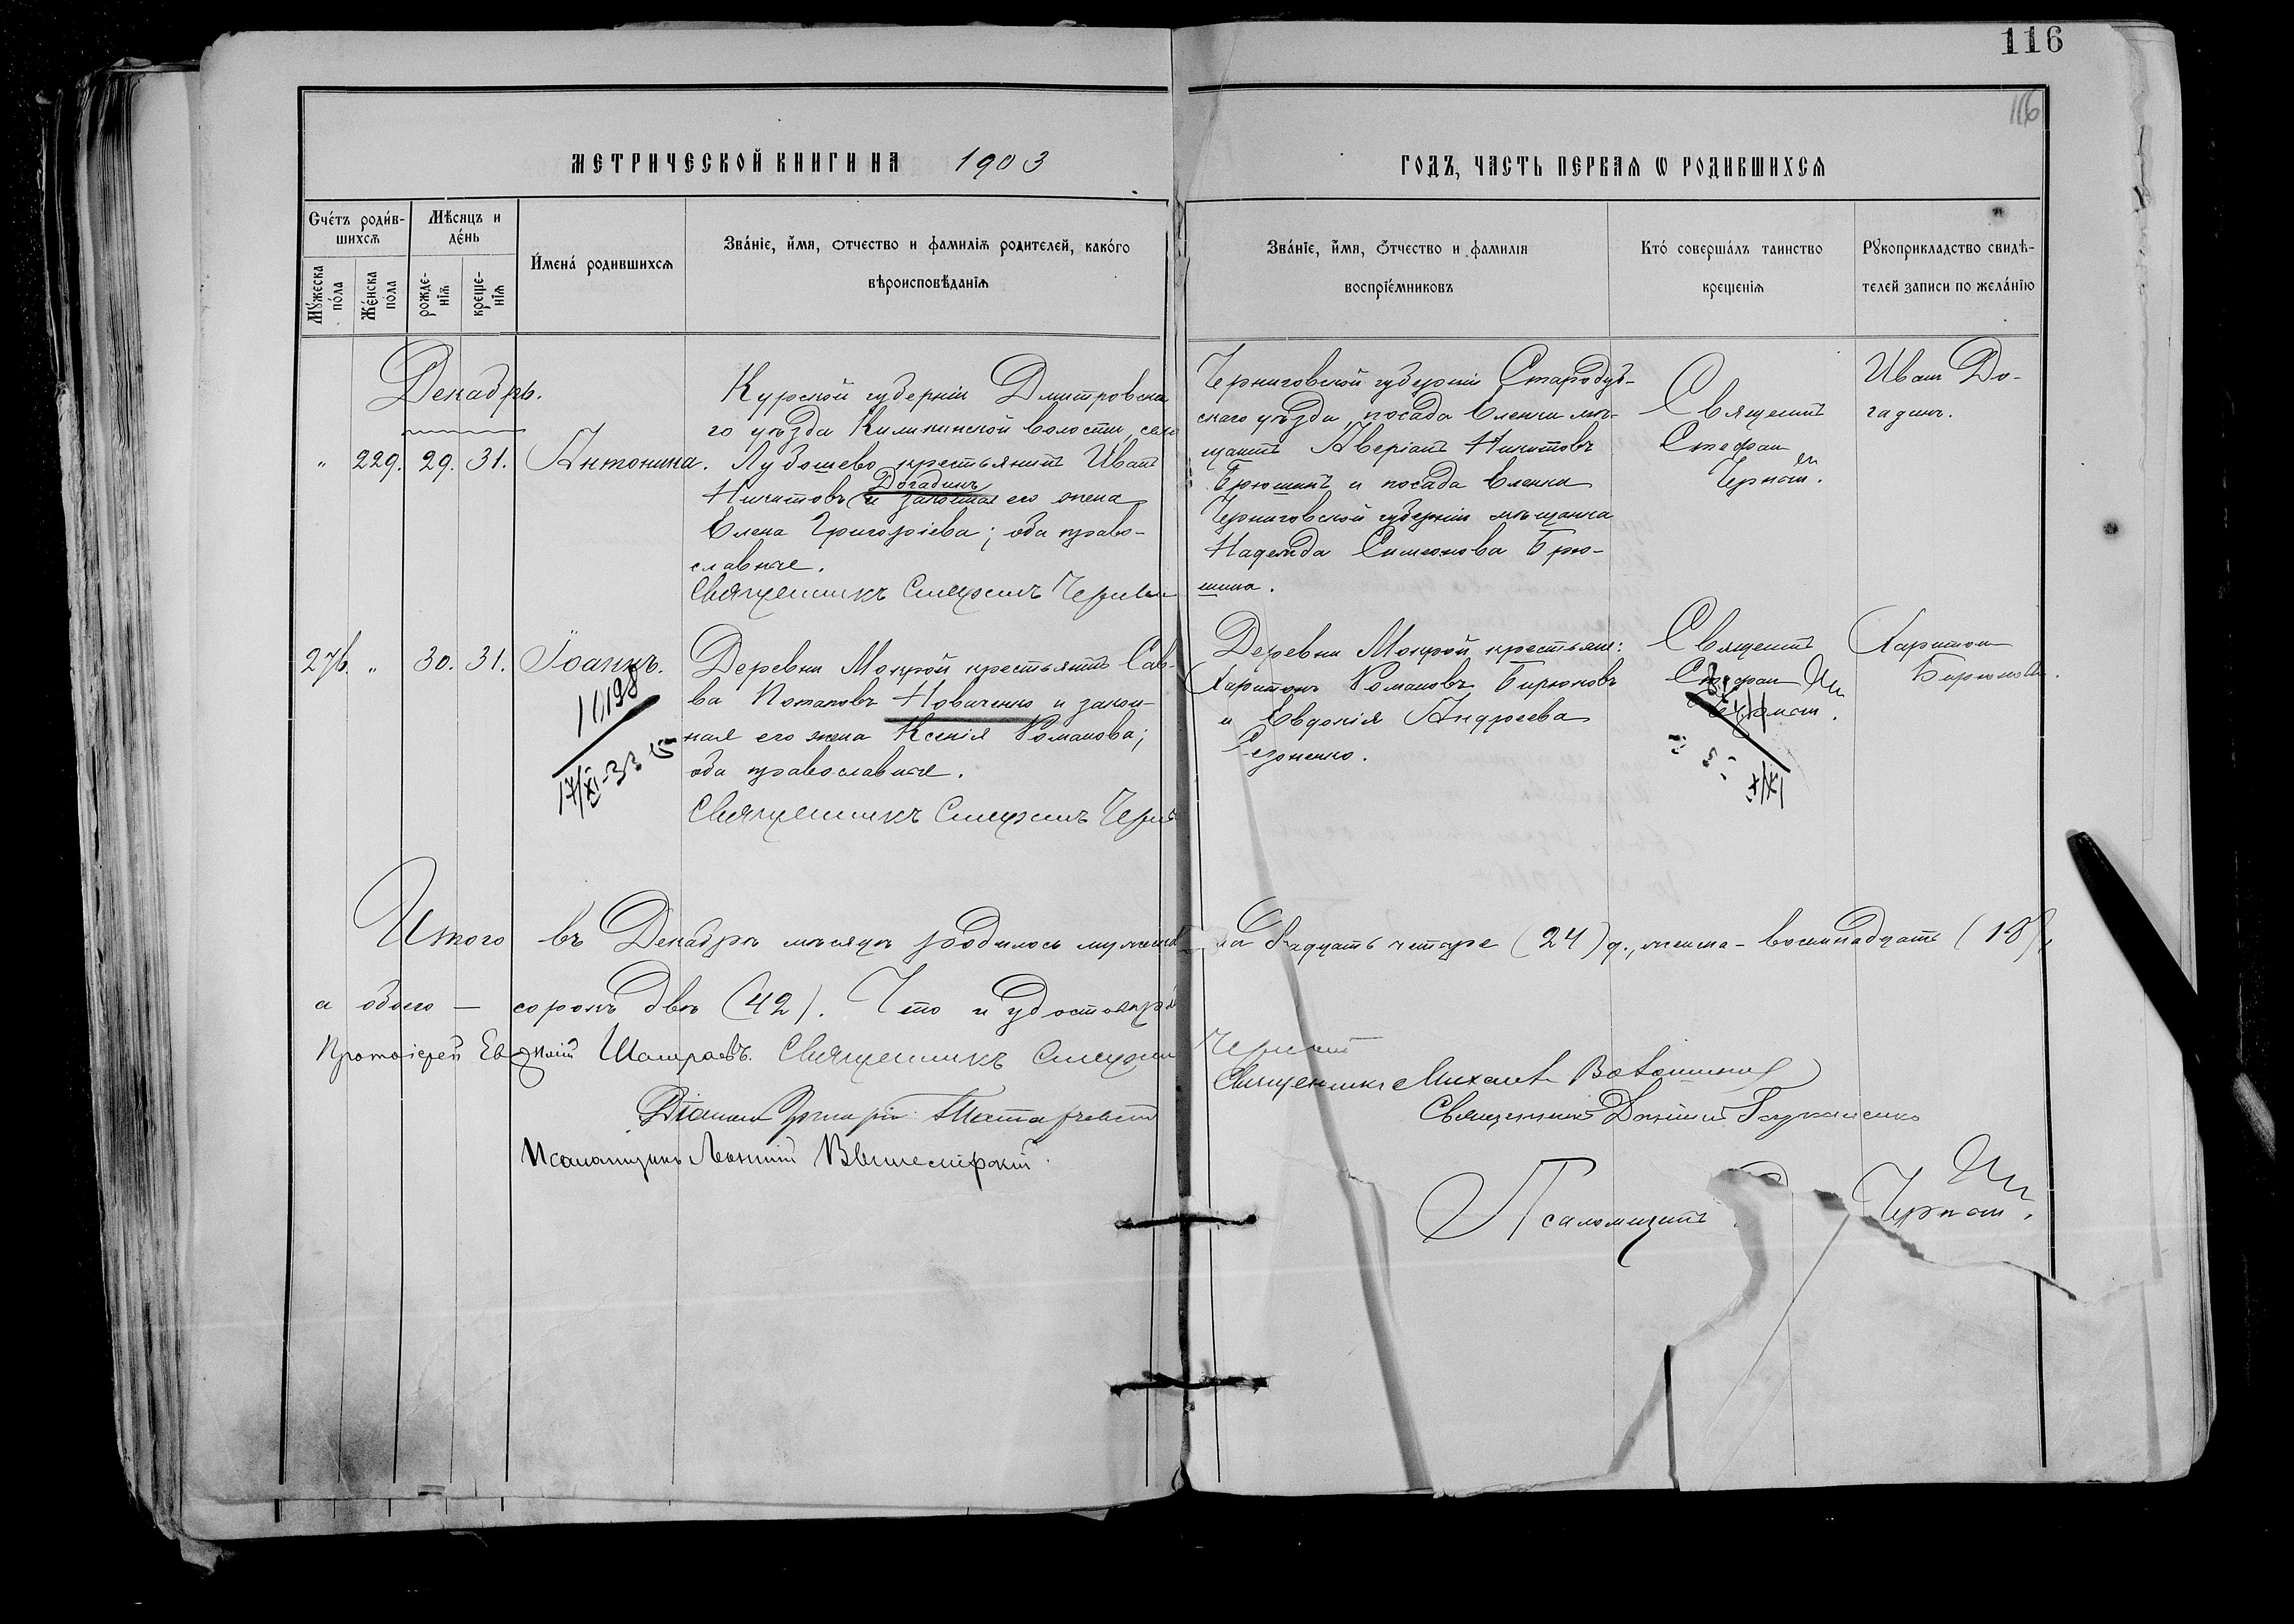 116
116
МЕТРИЧЕСКОЙ КНИГИ НА 1903
ГОДЪ, ЧАСТЬ ПЕРВАЯ Ѡ РОДИВШИХСЯ
Счётъ родив-
шихся
Мѣсяцъ и
день
Мужеска
пола
Женска
пола
рожде-
нія
креще-
нія
Имена родившихся
Званіе, имя, отчество и фамилія родителей, какого
вѣроисповѣданія
Званіе, имя, отчество и фамилія
воспріемниковъ
Кто совершалъ таинство
крещенія
Рукоприкладство свидѣ-
телей записи по желанію
Декабрь.
" 229. 29. 31. Антонина.
Курской губерніи Дмитровска
го уѣзда волости, село
Лубошево крестьянинъ Иванъ
Догадинъ
Никитовъ и законная его жена
Елена Григоріева; оба право-
славные.
Священникъ Стефанъ
Черниговской губерніи Стародуб-
скаго уѣзда, посада Еленки мѣ-
щанинъ Аверіанъ Никитовъ
Брюшинъ и посада Еленки
Черниговской губерніи мѣщанка
Надежда Симеонова Брю-
шина.
Священ
Стефан
Иван До-
гадинъ.
276. " 30. 31. Іоаннъ.
Деревни Мокрой крестьянинъ Сав-
ва Потаповъ Новиченко и закон-
ная его жена Ксенія Романова;
оба православные.
Священникъ Стефанъ
Деревни Мокрой крестьяне:
Харитонъ Романовъ Бирюковъ
и Евдокія Андреева
Священ
Стефан
Харитон
Бирюковъ.
17/XI-33
Итого въ Декабрѣ мѣсяцѣ родилось мужеска двадцать четыре (24) д., женска - восемнадцать (18),
а обоего — сорокъ два (42). Что и удостовѣря
Протоіерей Священникъ Стефан
Священникъ Михаилъ
Священникъ
Псаломщикъ
Псаломщикъ